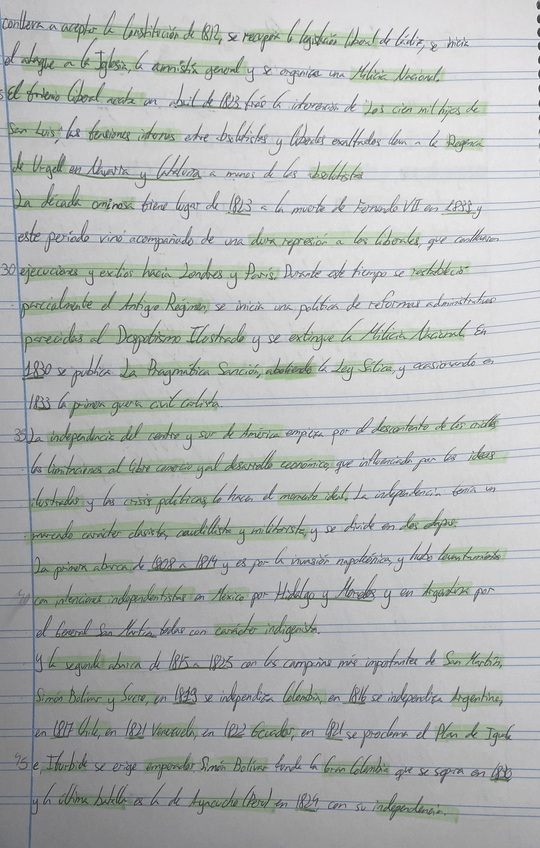 conlleva a aceptar la Constitución de 1812, se recupera la legislación liberal de Cádiz, se inicia
el ataque a la Iglesia, la amnistía general y se organiza una Milicia Nacional.
El trienio liberal acaba en abril de 1823 tras la intervención de los cien mil hijos de
San Luis, las tensiones internas entre absolutistas y liberales exaltados llevan a la Regencia
de Urgell en Navarra y Cataluña a manos de los absolutistas
La década ominosa tiene lugar de 1823 a la muerte de Fernando VII en 1833 y
este periodo vino acompañado de una dura represión a los liberales, que conllevaron
30 ejecuciones y exilios hacia Londres y París. Durante este tiempo se restableció
parcialmente el Antiguo Régimen, se inicia una política de reformas administrativas
parecidas al Despotismo Ilustrado y se extingue la Milicia Nacional. En
1830 se publica La Pragmática Sanción, aboliendo la Ley Sálica, y ocasionando en
1833 la primera guerra civil carlista.
35 La independencia del centro y sur de América empieza por el descontento de los criollos
las limitaciones al libre comercio y al desarrollo económico que influenciado por las ideas
ilustradas y las crisis políticas, lo hacen el momento ideal. La independencia tenía un
marcado carácter clasista, caudillista y militarista, y se divide en dos etapas.
La primera abarca de 1808 a 1814 y es por la invasión napoleónica, y hubo levantamientos
40 con intenciones independentistas en México por Hidalgo y Morelos y en Argentina por
el General San Martín, todas con carácter indigenista.
Y la segunda abarca de 1815 a 1825 con las campañas más importantes de San Martín,
Simón Bolívar y Sucre, en 1819 se independiza Colombia, en 1816 se independiza Argentina,
en 1817 Chile, en 1821 Venezuela, en 1822 Ecuador, en 1821 se proclama el Plan de Iguala
45 e, Iturbide se erige emperador Simón Bolívar funda la Gran Colombia que se separa en 1830
y la última batalla es la de Ayacucho (Perú) en 1824 con su independencia.